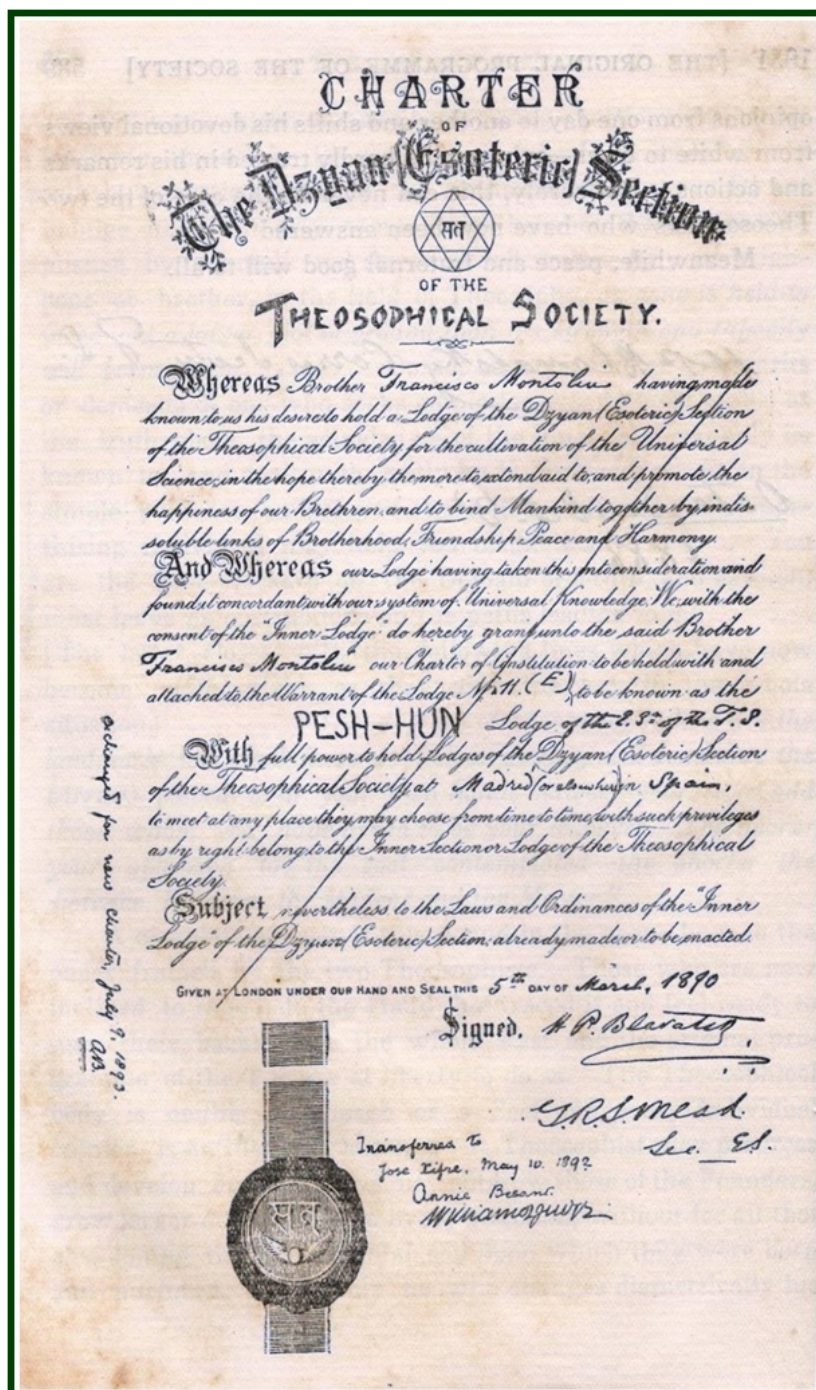 CHARTER
OF
The Dzyan (Esoteric) Section
सत
OF THE
THEOSOPHICAL SOCIETY.
Whereas Brother Francisco Montoliu having made
known to us his desire to hold a Lodge of the Dzyan (Esoteric) Section
of the Theosophical Society for the cultivation of the Universal
Science, in the hope thereby the more to extend aid to, and promote, the
happiness of our Brethren, and to bind Mankind together by indis-
soluble links of Brotherhood, Friendship Peace and Harmony.
And Whereas our Lodge having taken this into consideration and
found it concordant with our system of Universal Knowledge, We, with the
consent of the "Inner Lodge" do hereby grant unto the said Brother
Francisco Montoliu our Charter of Constitution to be held with and
attached to the Warrant of the Lodge No 11. (E), to be known as the
PESH-HUN Lodge of the E. Sn of the T. S.
With full power to hold Lodges of the Dzyan (Esoteric) Section
of the Theosophical Society at Madrid (or elsewhere) in Spain,
to meet at any place they may choose from time to time, with such privileges
as by right belong to the Inner Section or Lodge of the Theosophical
Society.
Subject nevertheless to the Laws and Ordinances of the "Inner
Lodge" of the Dzyan (Esoteric) Section, already made, or to be, enacted.
GIVEN AT LONDON UNDER OUR HAND AND SEAL THIS 5th DAY OF March, 1890
Signed, H P. Blavatsky
G.R.S. Mead.
Sec. E.S.
Transferred to
Jose Xifre, May 10. 1892
Annie Besant.
William Q Judge
exchanged for new charter, July 9, 1893.
A.B.
सत्